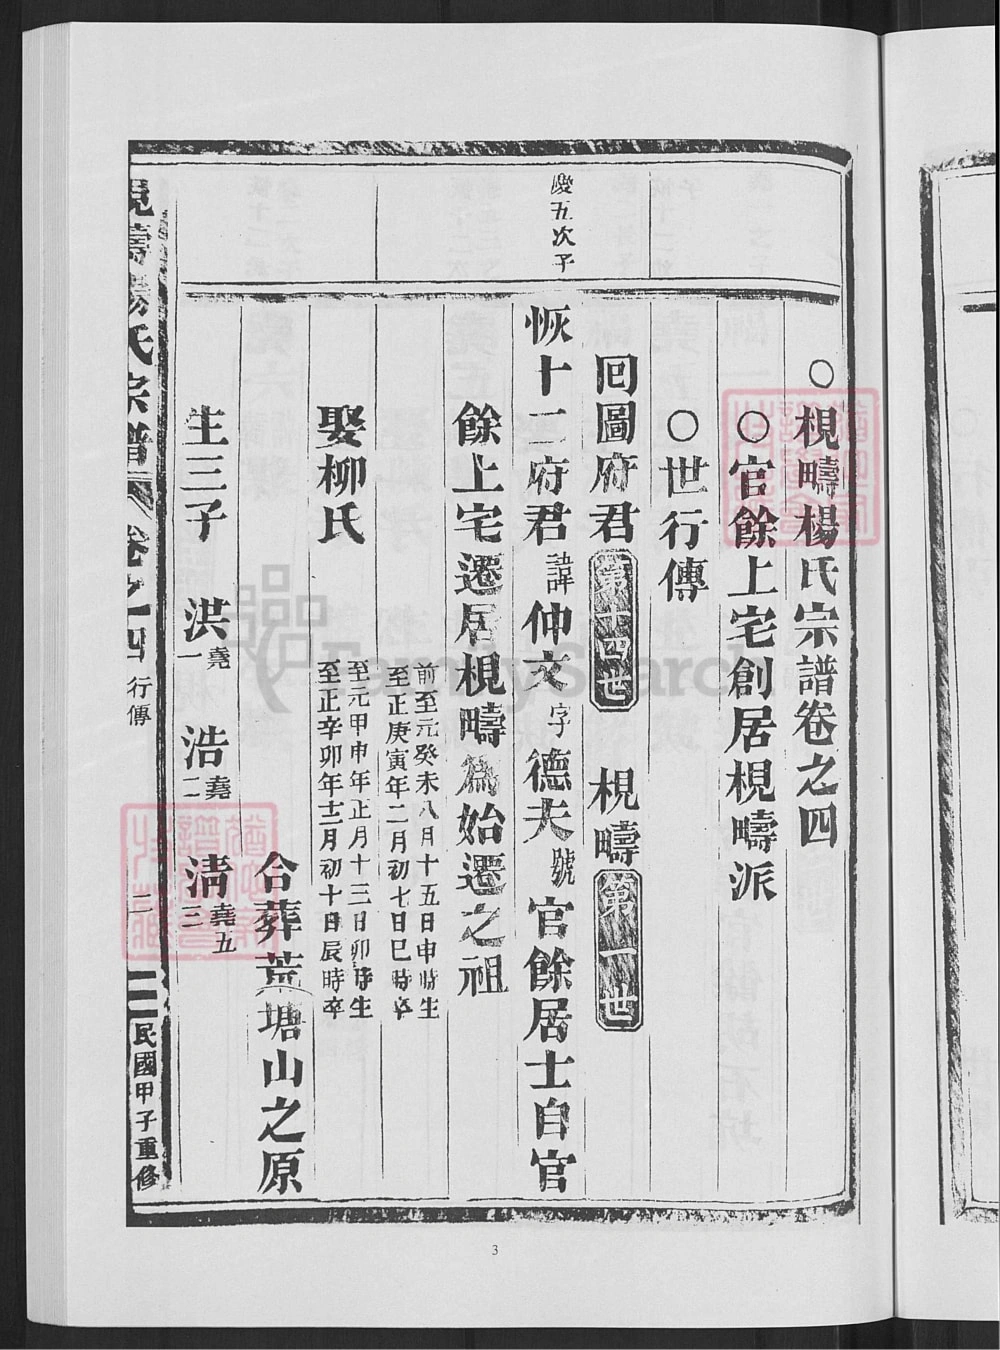 ○梘疇楊氏宗譜卷之四
○官餘上宅創居梘疇派
○世行傳
回圖府君 第十四世 梘疇 第一世
慶五次子
恢十二府君 諱仲文 字德夫 號官餘居士自官
餘上宅遷居梘疇為始遷之祖
前至元癸未八月十五日申時生
至正庚寅年二月初七日巳時卒
娶柳氏
至元甲申年正月十三日卯時生
至正辛卯年十二月初十日辰時卒
合葬荒塘山之原
生三子 洪堯一 浩堯二 清堯五三
梘疇楊氏宗譜 卷之四 行傳 一 民國甲子重修
FamilySearch
3